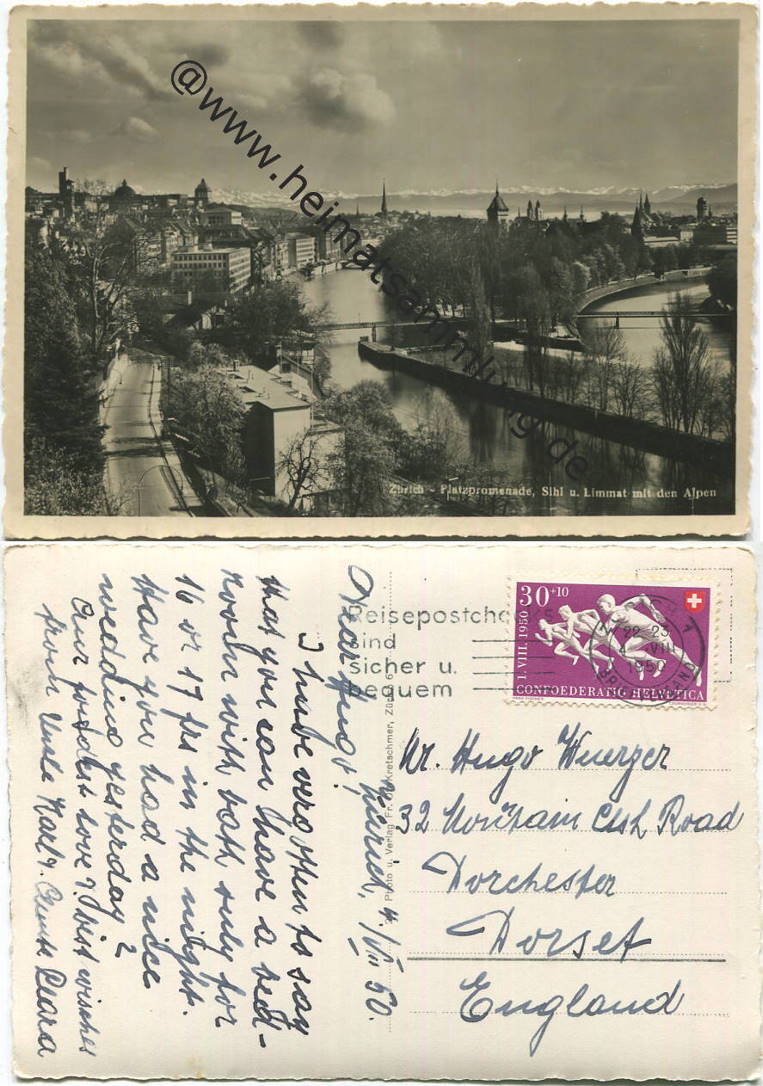 @www.heimatsammlung.de
Zürich - Platzpromenade, Sihl u. Limmat mit den Alpen
Reisepostchecks
sind
sicher u.
bequem
30+10
1. VIII. 1950
CONFOEDERATIO HELVETICA
22-23
4. VIII
1950
Photo u. Verlag Fr. Kretschmer, Zürich 6
Zürich, 4/VIII 50.
Dear Hugo!
I have very often to say
that you can have a bed-
room with bath only for
16 or 17 frs in the night.
Have you had a nice
wedding yesterday?
Our fondest love & best wishes
from Uncle Karl & Aunt Clara
Mr. Hugo Wuerzer
32 Mountain Ash Road
Dorchester
Dorset
England